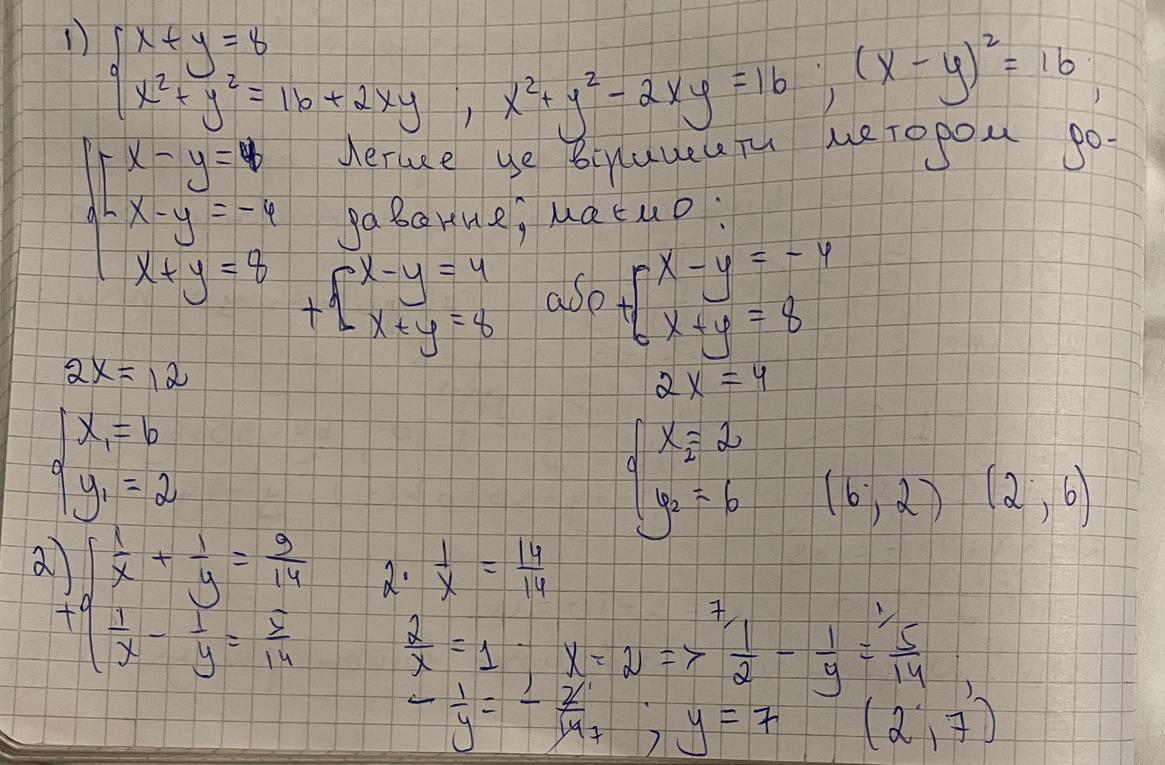 1) { x + y = 8
x² + y² = 16 + 2xy ; x² + y² - 2xy = 16 ; (x - y)² = 16 ;
{ [ x - y = 4 Легше це вірішити методом до-
x - y = -4 давання; маємо:
x + y = 8 + { x - y = 4 або + { x - y = -4
x + y = 8 x + y = 8
2x = 12 2x = 4
{ x₁ = 6 { x₂ = 2
y₁ = 2 y₂ = 6 (6 ; 2) (2 ; 6)
2) + { 1/x + 1/y = 9/14 2 · 1/x = 14/14
1/x - 1/y = 5/14 2/x = 1 ; x = 2 => ⁷/ 1/2 - 1/y = ¹/ 5/14 ;
- 1/y = - 2/14 7 ; y = 7 (2 ; 7)